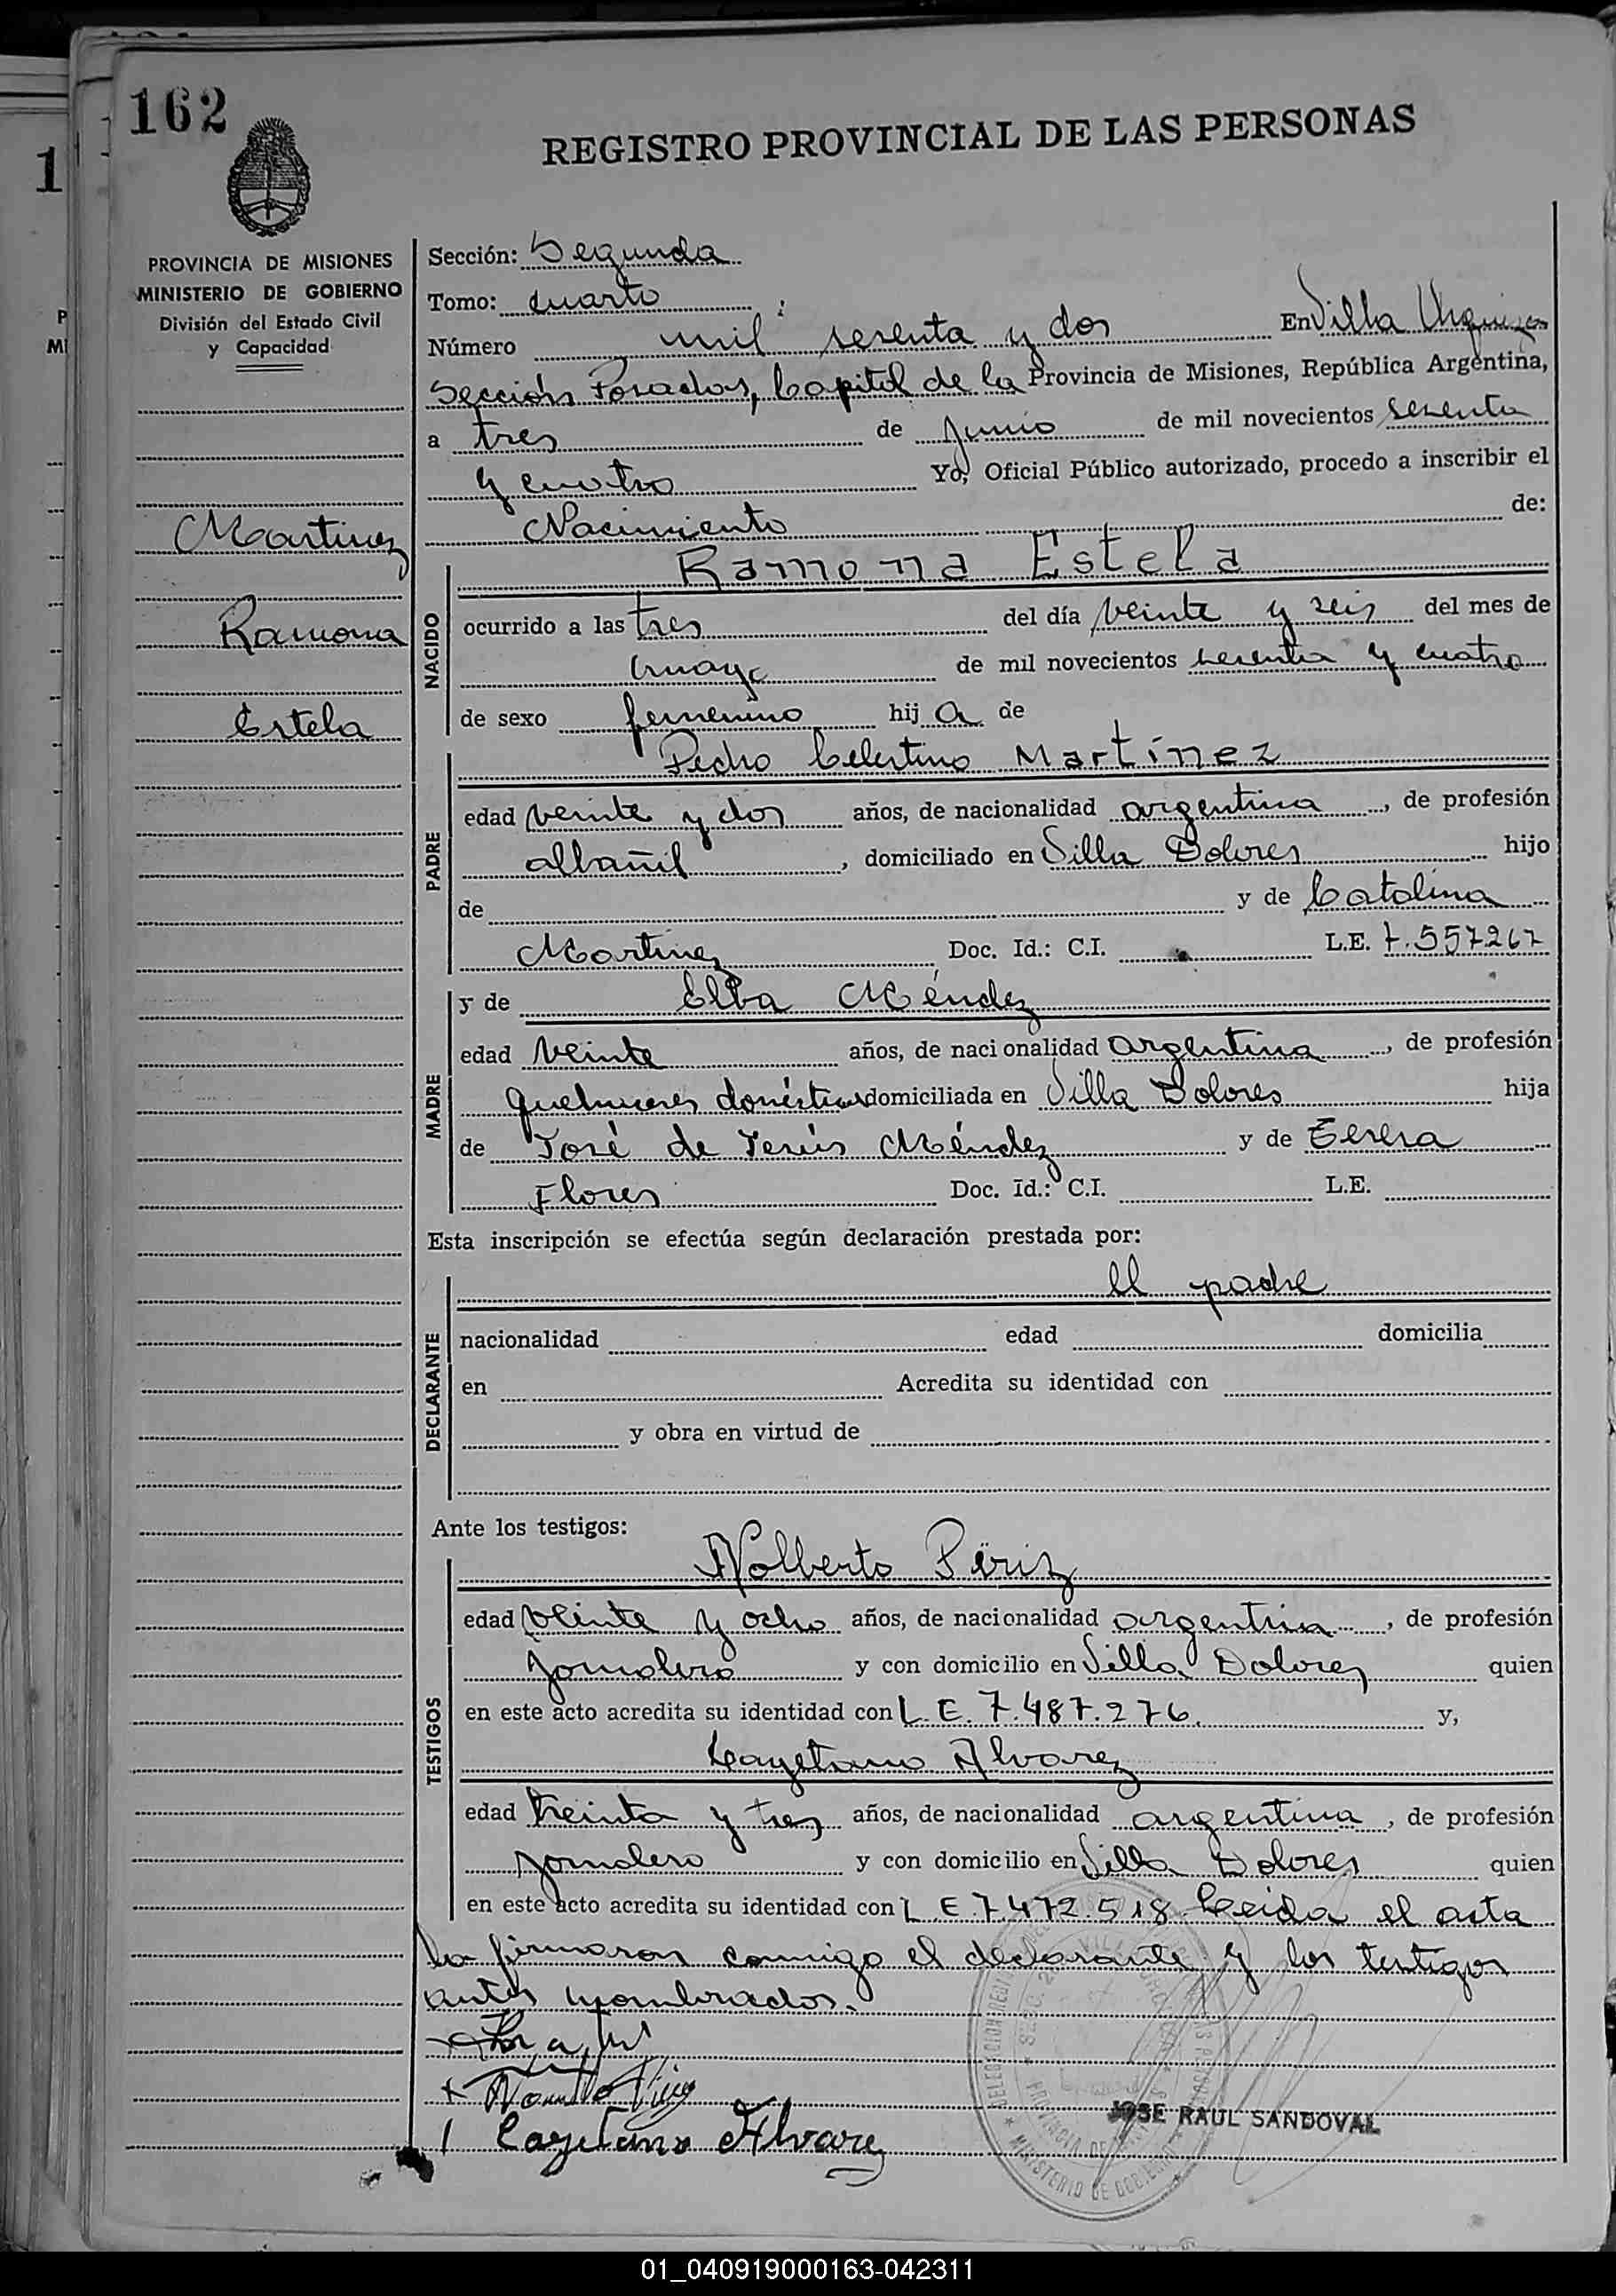 162
REGISTRO PROVINCIAL DE LAS PERSONAS
1
PROVINCIA DE MISIONES
MINISTERIO DE GOBIERNO
División del Estado Civil
y Capacidad
Martinez
Ramona
Estela
Sección: Segunda
Tomo: cuarto
Número mil sesenta y dos En Villa Urquiza
Sección Posadas, Capital de la Provincia de Misiones, República Argentina,
a tres de Junio de mil novecientos sesenta
y cuatro Yo, Oficial Público autorizado, procedo a inscribir el
Nacimiento de:
NACIDO
Ramona Estela
ocurrido a las tres del día veinte y seis del mes de
mayo de mil novecientos sesenta y cuatro
de sexo femenino hij a de
PADRE
Pedro Celestino Martínez
edad veinte y dos años, de nacionalidad argentina, de profesión
albañil, domiciliado en Villa Dolores hijo
de y de Catalina
Martinez Doc. Id.: C.I. L.E. 7.557267
MADRE
y de Elba Méndez
edad veinte años, de nacionalidad argentina, de profesión
quehaceres domésticos domiciliada en Villa Dolores hija
de José de Jesús Méndez y de Teresa
Flores Doc. Id.: C.I. L.E.
Esta inscripción se efectúa según declaración prestada por:
DECLARANTE
el padre
nacionalidad edad domicilia
en Acredita su identidad con
y obra en virtud de
Ante los testigos:
TESTIGOS
Nolberto
edad veinte y ocho años, de nacionalidad argentina, de profesión
Jornalero y con domicilio en Villa Dolores quien
en este acto acredita su identidad con L.E. 7.487.276. y,
Cayetano Alvarez
edad treinta y tres años, de nacionalidad argentina, de profesión
Jornalero y con domicilio en Villa Dolores quien
en este acto acredita su identidad con L.E. 7.472.518 Leida el acta
la firmaron conmigo el declarante y los testigos
antes nombrados.
Cayetano Alvarez
JOSE RAUL SANDOVAL
MINISTERIO DE GOBIERNO
01_040919000163-042311